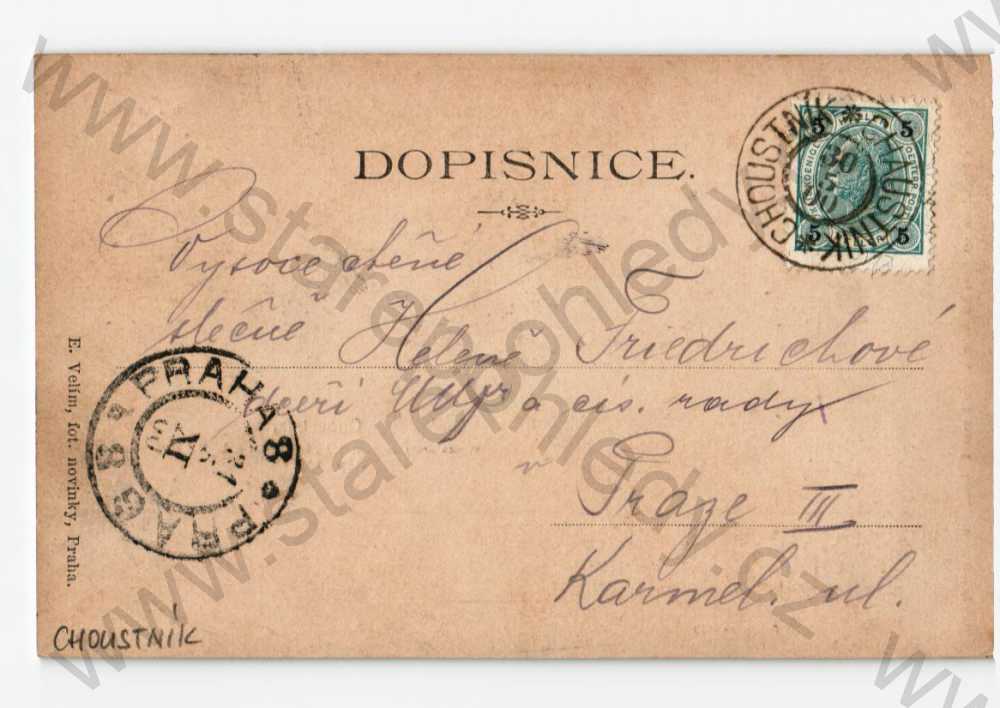 DOPISNICE.
Vysoce ctěné
slečně Heleně Friedrichové
dceři a cís. rady
v Praze III
Karmel. ul.
E. Velím, fot. novinky, Praha.
CHOUSTNÍK
CHOUSTNIK * CHAUSTNIK *
30
5 5 5 5
PRAHA 8 * PRAG 8 *
IX
www.starepohledy.cz